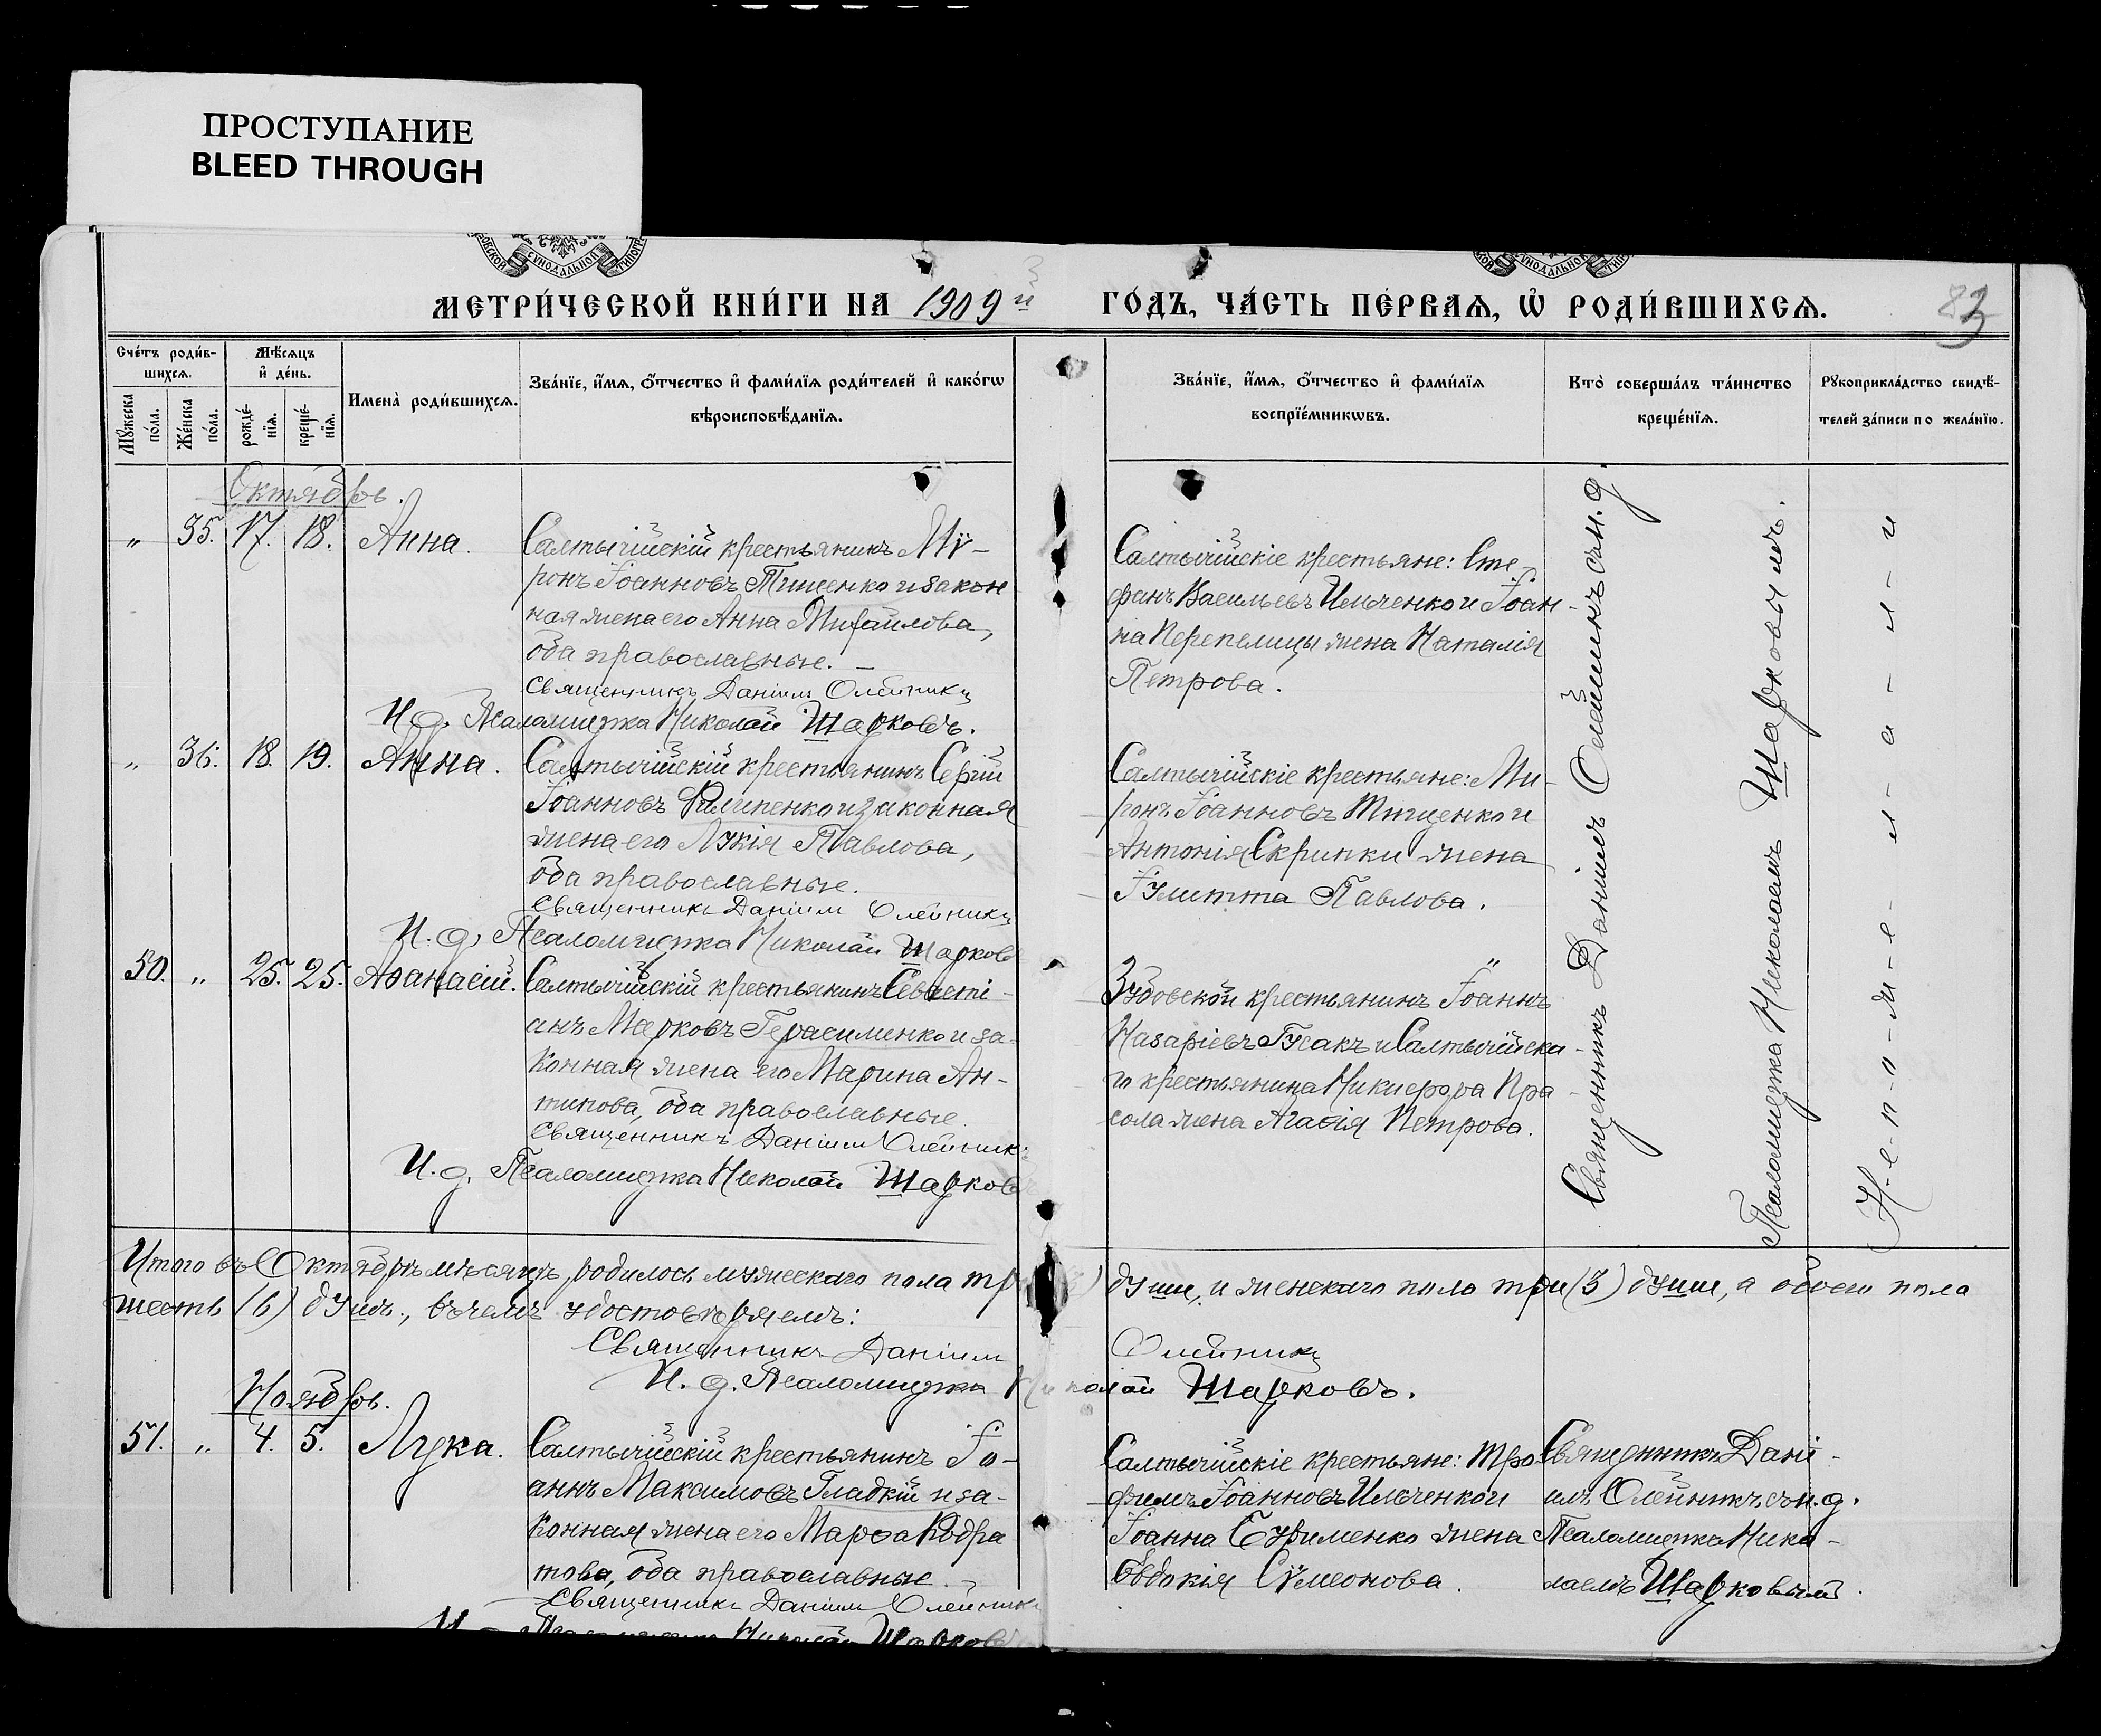 ПРОСТУПАНИЕ
BLEED THROUGH
СУНОДАЛЬНОЙ
СУНОДАЛЬНОЙ
МЕТРИ́ЧЕСКОЙ КНИ́ГИ НА 1909й ГО́ДЪ, ЧА́СТЬ ПЕ́РВАѦ, Ѽ РОДИ́ВШИХСѦ.
83
Сче́тъ роди́в-
шихсѧ.
Мѣ́сѧцъ
и҆ де́нь.
Мꙋ́жеска по́ла.
Же́нска по́ла.
рожде́-нїѧ.
креще́-нїѧ.
Имена̀ роди́вшихсѧ.
Зва́нїе, и҆́мѧ, ѻ҆́тчество и҆ фами́лїѧ роди́телей и҆ како́гѡ
вѣроисповѣ́данїѧ.
Зва́нїе, и҆́мѧ, ѻ҆́тчество и҆ фами́лїѧ
воспрїе́мникѡвъ.
Кто̀ соверша́лъ та́инство
креще́нїѧ.
Рꙋкоприкла́дство свидѣ́-
телей за́писи по жела́нїю.
Октябрь.
„ 35. 17. 18. Анна.
Салтычійскій крестьянинъ Мѵ-
ронъ Іоанновъ Тищенко и закон
ная жена его Анна Михаилова,
оба православные. –
Священникъ Даніилъ Олейникъ
И. д. Псаломщика Николай Шарковъ.
Салтычійскіе крестьяне: Сте-
фанъ Васильевъ Ильченко и Іоан-
на Перепелицы жена Наталія
Петрова.
„ 36. 18. 19. Анна.
Салтычійскій крестьянинъ Сергій
Іоанновъ Филипенко и законная
жена его Лукія Павлова,
оба православные.
Священникъ Даніилъ Олейникъ
И. д. Псаломщика Николай Шарковъ
Салтычійскіе крестьяне: Ми-
ронъ Іоанновъ Тищенко и
Антонія Скрипки жена
Іулитта Павлова.
50. „ 25. 25. Аѳанасій.
Салтычійскій крестьянинъ Севасті-
анъ Марковъ Герасименко и за-
конная жена его Марина Ан-
типова, оба православные.
Священникъ Даніилъ Олейникъ
И. д. Псаломщика Николай Шарковъ
Зубовской крестьянинъ Іоаннъ
Назаріевъ Гусакъ и Салтычійска-
го крестьянина Никифора Пра-
сола жена Агаѳія Петрова.
Священникъ Даніилъ Олейникъ съ и. д
Псаломщика Николаемъ Шарковымъ.
Н-е-п-о-м-е-
Итого въ Октябрѣ мѣсяцѣ, родилось мужескаго пола тр 3) души, и женскаго пола три (3) души, а обоего пола
шесть (6) душъ, въ чемъ удостовѣряемъ:
Священникъ Даніилъ Олейникъ
И. д. Псаломщика Николай Шарковъ.
Ноябрь.
51. „ 4. 5. Лука.
Салтычійскій крестьянинъ Іо-
аннъ Максимовъ Гладкій и за-
конная жена его Марѳа Кодра
това, оба православные.
Священникъ Даніилъ Олейникъ
Николай Шарковъ
Салтычійскіе крестьяне: Тро-
фимъ Іоанновъ Ильченко и
Іоанна Ефименко жена
Евдокія Сѵмеонова.
Священникъ Дані-
илъ Олейникъ съ и. д.
Псаломщика Нико-
лаемъ Шарковымъ.